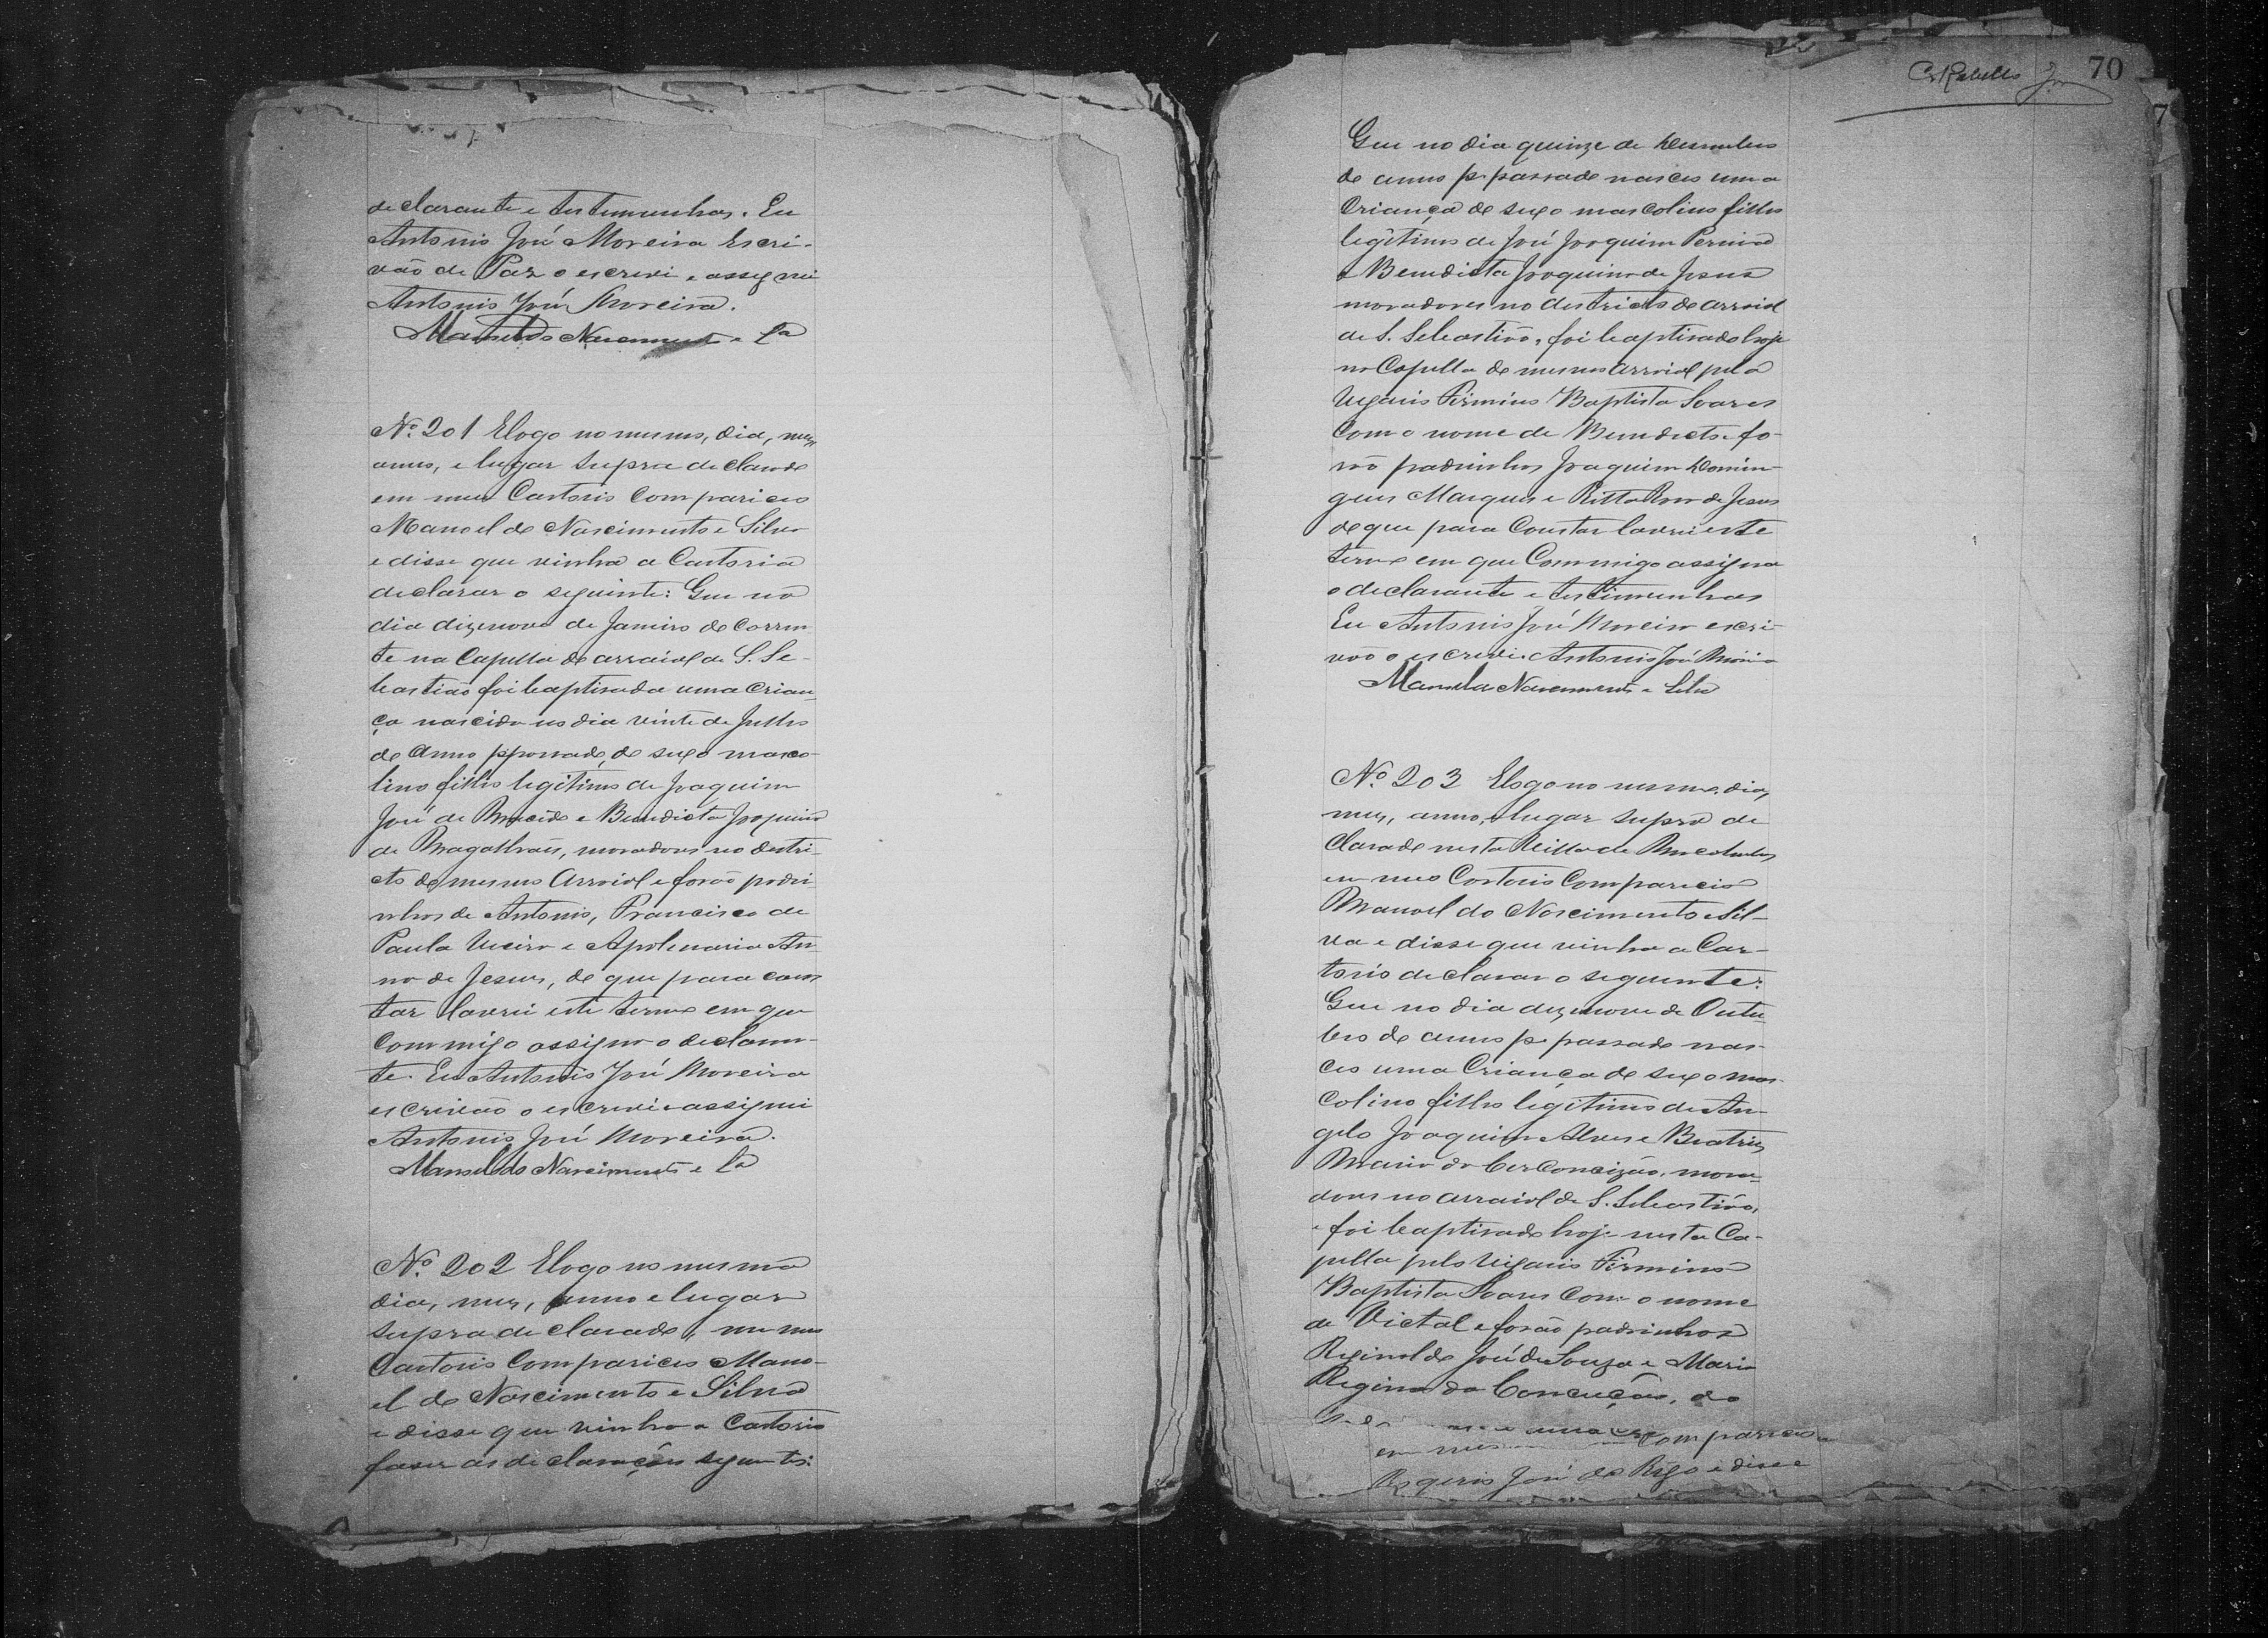 declarante e testemunhas. Eu
Antonio José Moreira Escri-
vão de Paz o escrevi e assignei
Antonio José Moreira.
Manoel do Nascimento e Sa
Nº 201 E logo no mesmo, dia, mez,
anno, e lugar supra declarado
em meu Cartorio compareceo
Manoel do Nascimento e Silva
e disse que vinha a Cartorio
declarar o seguinte: Que no
dia dizenove de Janeiro do corren
te na Capella do arraial de S. Se-
bastião foi baptisada uma crian-
ça nascida no dia vinte de Julho
do anno ppassado, do sexo masco-
lino filho legitimo de Joaquim
José de e Benedicta Joaquina
de Magalhães, moradores no destri-
cto do mesmo Arraial e forão padri
nhos de Antonio, Francisco de
Paula Vieira e Apolenaria An
na de Jesus, do que para cons
tar lavrei este termo em que
commigo assigna o declaran-
te. Eu Antonio José Moreira
escrivão o escrevi e assignei
Antonio José Moreira.
Manoel do Nascimento e Sa
Nº 202 E logo no mesmo
dia, mez, anno e lugar
supra declarado, em meu
Cartorio compareceo Mano-
el do Nascimento e Silva
e disse que vinha a Cartorio
faser as declarações seguintes:
70
Que no dia quinze de Desembro
do anno p. passado nasceo uma
Criança do sexo mascolino filho
legitimo de José Joaquim
e Benedicta Joaquina de Jesus
moradores no destricto do arraial
de S. Sebastião, foi baptisado hoje
na Capella do mesmo arraial pelo
Vigario Firmino Baptista Soares
com o nome de Benedicto e fo-
rão padrinhos Joaquim Domin-
gues Marques e Ritta de Jesus
do que para constar lavrei este
termo em que commigo assigna
o declarante e testimunhas
Eu Antonio José Moreira escri-
vão o escrevi. Antonio José Moreira
Manoel do Nascimento e Silva
Nº 203 E logo no mesmo dia,
mez, anno, e lugar supra de
clarado nesta Villa de
em meu Cartorio compareceo
Manoel do Nascimento e Sil-
va e disse que vinha a Car-
torio declarar o seguinte:
Que no dia dezenove de Outu-
bro do anno p. passado nas-
ceo uma Criança do sexo mas-
colino filho legitimo de An-
gelo Joaquim Alves e Beatriz
Maria da Conceição, mora-
dores no arraial de S. Sebastião,
e foi baptisado hoje nesta Ca-
pella pelo Vigario Firmino
Baptista Soares com o nome
de Victal e forão padrinhos
Reginaldo José de Souza e Maria
Regina da Conceição, do
compareceo
José do Rego e disse